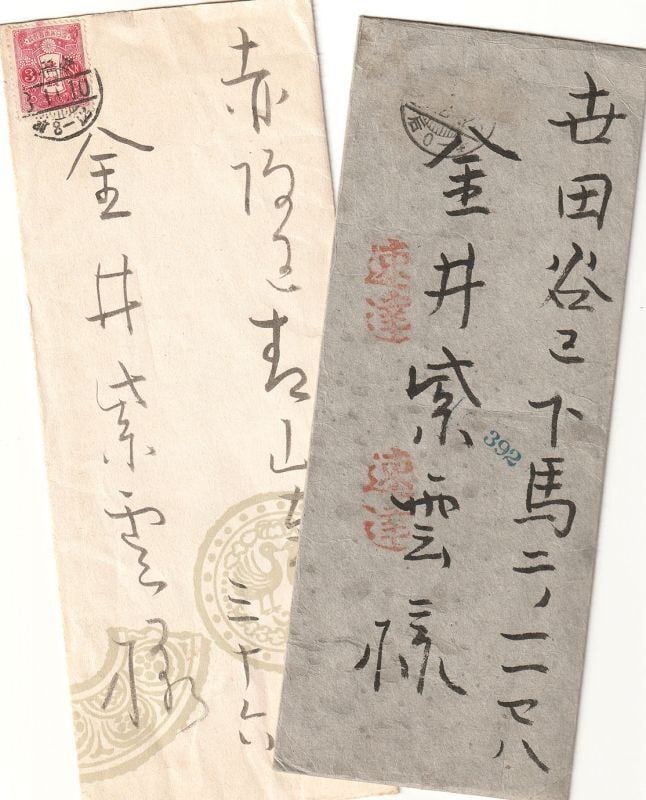 赤坂区青山
三十六
金井紫雲様
世田谷区下馬二ノ一一七八
金井紫雲様
速達
速達
392